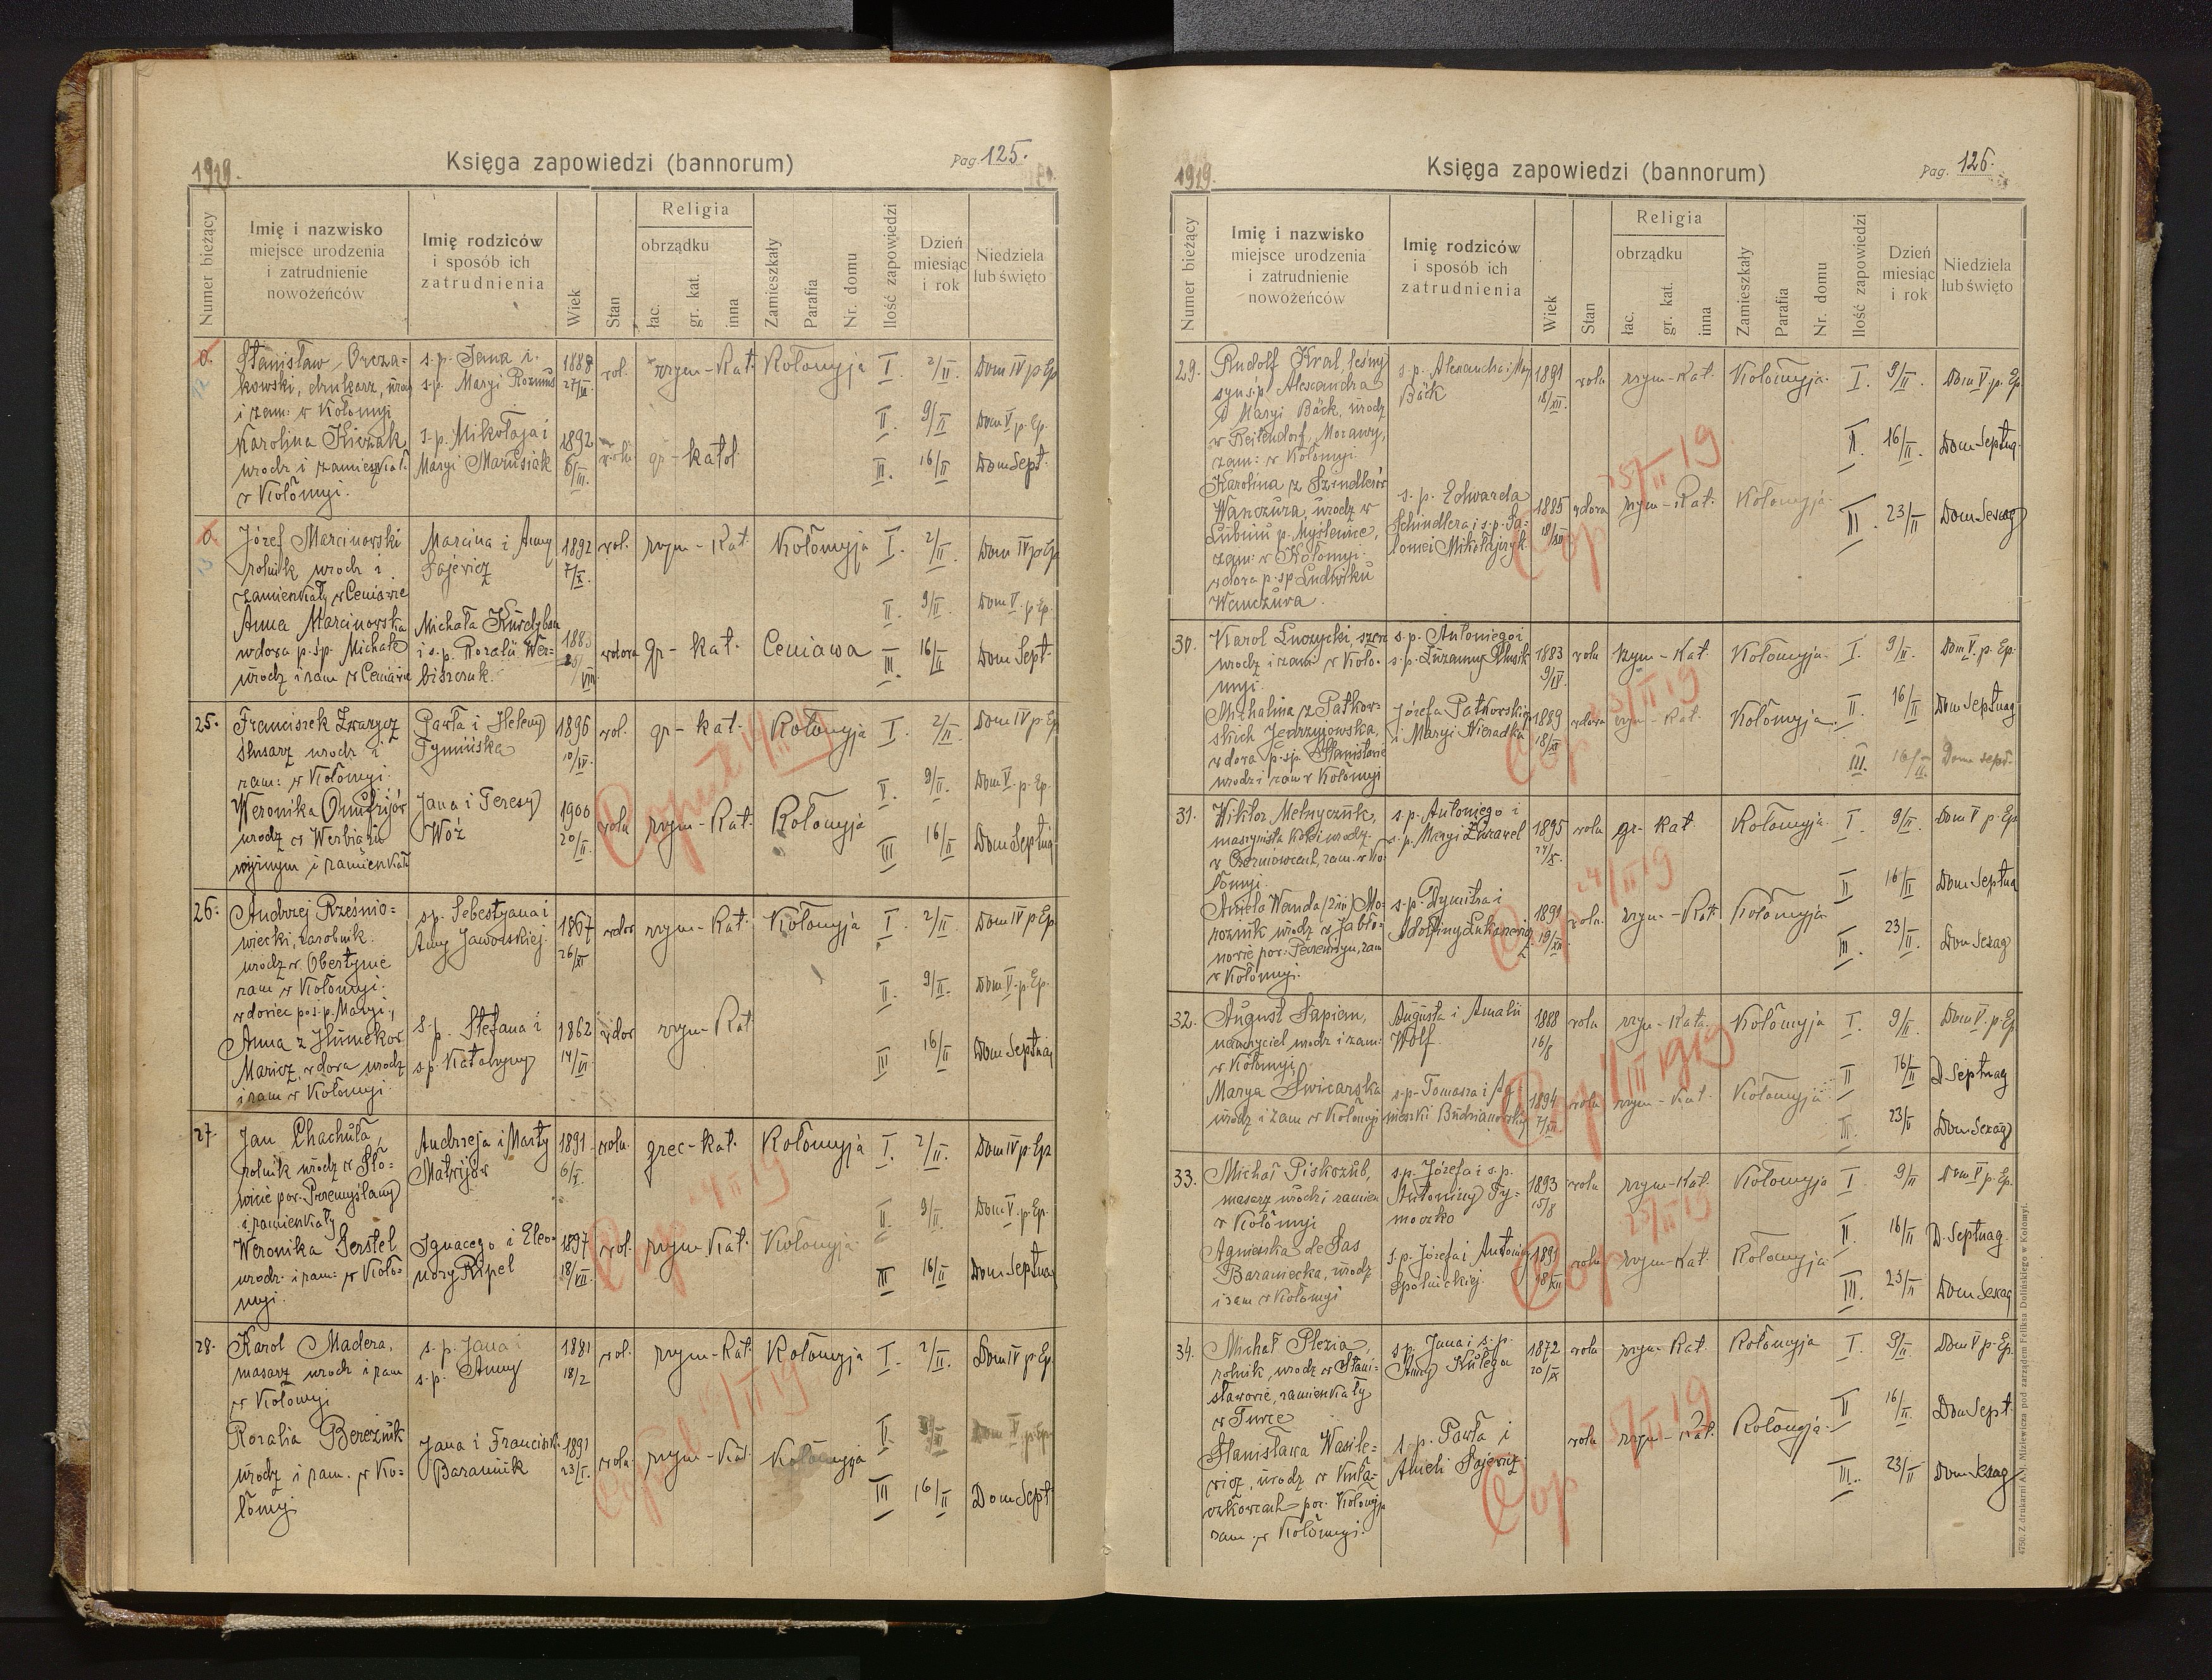 1919.
Księga zapowiedzi (bannorum)
Pag. 125.
Numer bieżący
Imię i nazwisko
miejsce urodzenia
i zatrudnienie
nowożeńców
Imię rodziców
i sposób ich
zatrudnienia
Wiek
Stan
Religia
obrządku
łac.
gr. kat.
inna
Zamieszkały
Parafia
Nr. domu
Ilość zapowiedzi
Dzień
miesiąc
i rok
Niedziela
lub święto
Stanisław
kowski, drukarz, urodz
i zam: w Kołomyi
s.p. Jana i
s.p. Maryi
1888
rzym-Kat. Kołomyja I. 2/II. Dom IV p Ep
II. 9/II Dom V p. Ep.
Karolina Kiczak
urodz i zamieszkał.
w Kołomyi.
s.p. Mikołaja i
Maryi Marusiak
1892
6/III.
gr-katol
III. 16/II Dom Sept.
Józef Marcinowski
rolnik urodz i
zamieszkały w Ceniawie
Marcina i Anny
Sajewicz
1892
7/X.
wol. rzym-Kat. Kołomyja I. 2/II. Dom IV p Ep
II. 9/II. Dom V. p Ep.
Anna Marcinowska
wdowa p. śp. Michale
urodz i zam w Ceniawie
Michała
i s.p. Rozalii Wer=
biszczuk.
1883
VIII
wdowa gr-kat. Ceniawa III. 16/II Dom Sept.
25. Franciszek Zwarycz
ślusarz urodz i
zam: w Kołomyi
Pawła i Heleny
Tymińska
1896
10/IV.
wol. gr-kat. Kołomyja I. 2/II. Dom IV p Ep
9/II. Dom V. p. Ep.
Weronika Onufrijów
urodz w Werbiążu
niżnym i zamieszkała
Jana i Teresy
Woź
1900
20/II.
wolu rzym-Kat. Kołomyja III 16/II Dom Septuag
26. Andrzej
wiecki, zarobnik.
urodz w. Obertynie
zam w Kołomyi.
wdowiec po ś.p. Maryi.,
sp. Sebestyana i
Anny Jaworskiej
1867
26/XI
wdow rzym-Kat. Kołomyja I. 2/II. Dom IV p Ep
II. 9/II. Dom V. p. Ep.
Anna z
Maricz, wdowa urodz
i zam w Kołomyi
s.p. Stefana i
s.p. Katarzyny
1862
wdow rzym-Kat III 16/II Dom Septuag
27. Jan Chachuła,
rolnik urodz w Sło=
wicie pow. Przemyślany
i zamieszkały
Andrzeja i Marty
Matwijów
1891
6/I.
wolu. grec-kat. Kołomyja I. 2/II. Dom IV p. Ep
II. 9/II. Dom V. p. Ep.
Weronika Gerstel
urodz. i zam: w Koło=
myi.
Ignacego i Eleo-
nory Ripel
1897
18/VII.
wol. rzym-Kat. Kołomyja III 16/II Dom Septuag
28. Karol Madera,
masarz urodz i zam
w Kołomyi
s.p. Jana i
s.p. Anny
1881
18/2
wol. rzym-Kat. Kołomyja I. 2/II. Dom IV p. Ep
II
Rozalia Bereźnik
urodz i zam. w Ko=
łomyi
Jana i Franciszki
Baraniuk
1891
23/I.
wolu. rzym-Kat. Kołomyja III 16/II Dom Sept
1919.
Księga zapowiedzi (bannorum)
Pag. 126.
Numer bieżący
Imię i nazwisko
miejsce urodzenia
i zatrudnienie
nowożeńców
Imię rodziców
i sposób ich
zatrudnienia
Wiek
Stan
Religia
obrządku
łac.
gr. kat.
inna
Zamieszkały
Parafia
Nr. domu
Ilość zapowiedzi
Dzień
miesiąc
i rok
Niedziela
lub święto
29. Rudolf Kral, leśny
syn śp. Alexandra
Maryi Bäck, urodz
w Reitendorf, Morawy,
zam: w Kołomyi.
s.p. Alexandra i Maryi
Bäck
1891
18/XII.
wolu rzym-Kat. Kołomyja. I. 9/II. Dom V. p. Ep.
II. 16/II. Dom Septuag.
Karolina z Szindlerów
Wanczura, urodz w
Lubniu p. Myślenice,
zam: w Kołomyi
wdowa p. śp Ludwiku
Wanczura.
s.p. Edwarda
Schindlera i s.p. Sa-
lomei Mikołajczyk
1885
18/XII
wdowa rzym-Kat. Kołomyja. III. 23/II Dom Sexag
Cop 25/II 19
30. Karol Łuczycki,
urodz i zam w Koło-
myi.
s.p. Antoniego i
s.p. Zuzanny
1883
9/IV.
wolu rzym-Kat. Kołomyja. I. 9/II. Dom V. p. Ep.
II. 16/II Dom Septuag
Michalina z Patkow-
skich Jendrzejowska,
wdowa p. śp. Stanisławie
urodz i zam w Kołomyi
Józefa Patkowskiego
i Maryi Nieradka
1889
18/XI
wdowa rzym-Kat. Kołomyja.
III. 16/II. Dom sept.
31. Wiktor Melnyczuk,
maszynista kolei urodz.
w Czerniowcach, zam. w Ko-
łomyi.
s.p. Antoniego i
s.p. Maryi
1895
wolu gr-kat. Kołomyja. I. 9/II. Dom V p. Ep
II 16/II Dom Septua
Aniela Wanda (2im) Mo-
roznik urodz w Jabło-
nowie pow. Peczeniżyn, zam
w Kołomyi.
s.p. Dymitra i
Adolfiny Łukasiewicz
1891
19/XII.
wolu. rzym-Kat. Kołomyja III. 23/II. Dom Sexag
Cop 24/II 19
32. August Sapian,
nauczyciel urodz i zam:
w Kołomyi
Augusta i Amalii
Wolf.
1888
16/8
wolu rzym-Kat. Kołomyja I. 9/II. Dom V. p. Ep
II 16/II D Septuag
Marya Świcarska
urodz i zam w Kołomyi
s.p. Tomasza i Ag-
nieszki Budzianowskiej
1894
wolu rzym-Kat. Kołomyja III. 23/II Dom Sexag
33. Michał Piskozub,
masarz urodz i zamiesz
w Kołomyi
s.p. Józefa i s.p.
Antoniny Ty-
moczko
1893
15/8
wolu rzym-Kat. Kołomyja I 9/II Dom V p. Ep.
II. 16/II D. Septuag.
Agnieszka de Sas
Baraniecka, urodz
i zam w Kołomyi
s.p. Józefa i Antoniny
Spolnickiej.
1891
18/XII
wolu rzym-Kat. Kołomyja III. 23/II Dom Sexag
Cop 25/II 19
34. Michał Plezia,
rolnik, urodz w Stani-
sławowie, zamieszkały
w Turce
sp. Jana i s.p.
Anny Kulega
1872
20/IX
wolu rzym-Kat. Kołomyja I. 9/II. Dom V p. Ep.
II 16/II. Dom Sept.
Stanisława Wasile-
wicz, urodz w Kuła-
czkowcach pow. Kołomyja
zam. w Kołomyi.
s.p. Pawła i
Anieli Sajewicz
wolu rzym-Kat. Kołomyja. III. 23/II Dom Sexag
Cop
4750. Z drukarni A. J. Miziewicza pod zarządem Feliksa Dolińskiego w Kołomyi.